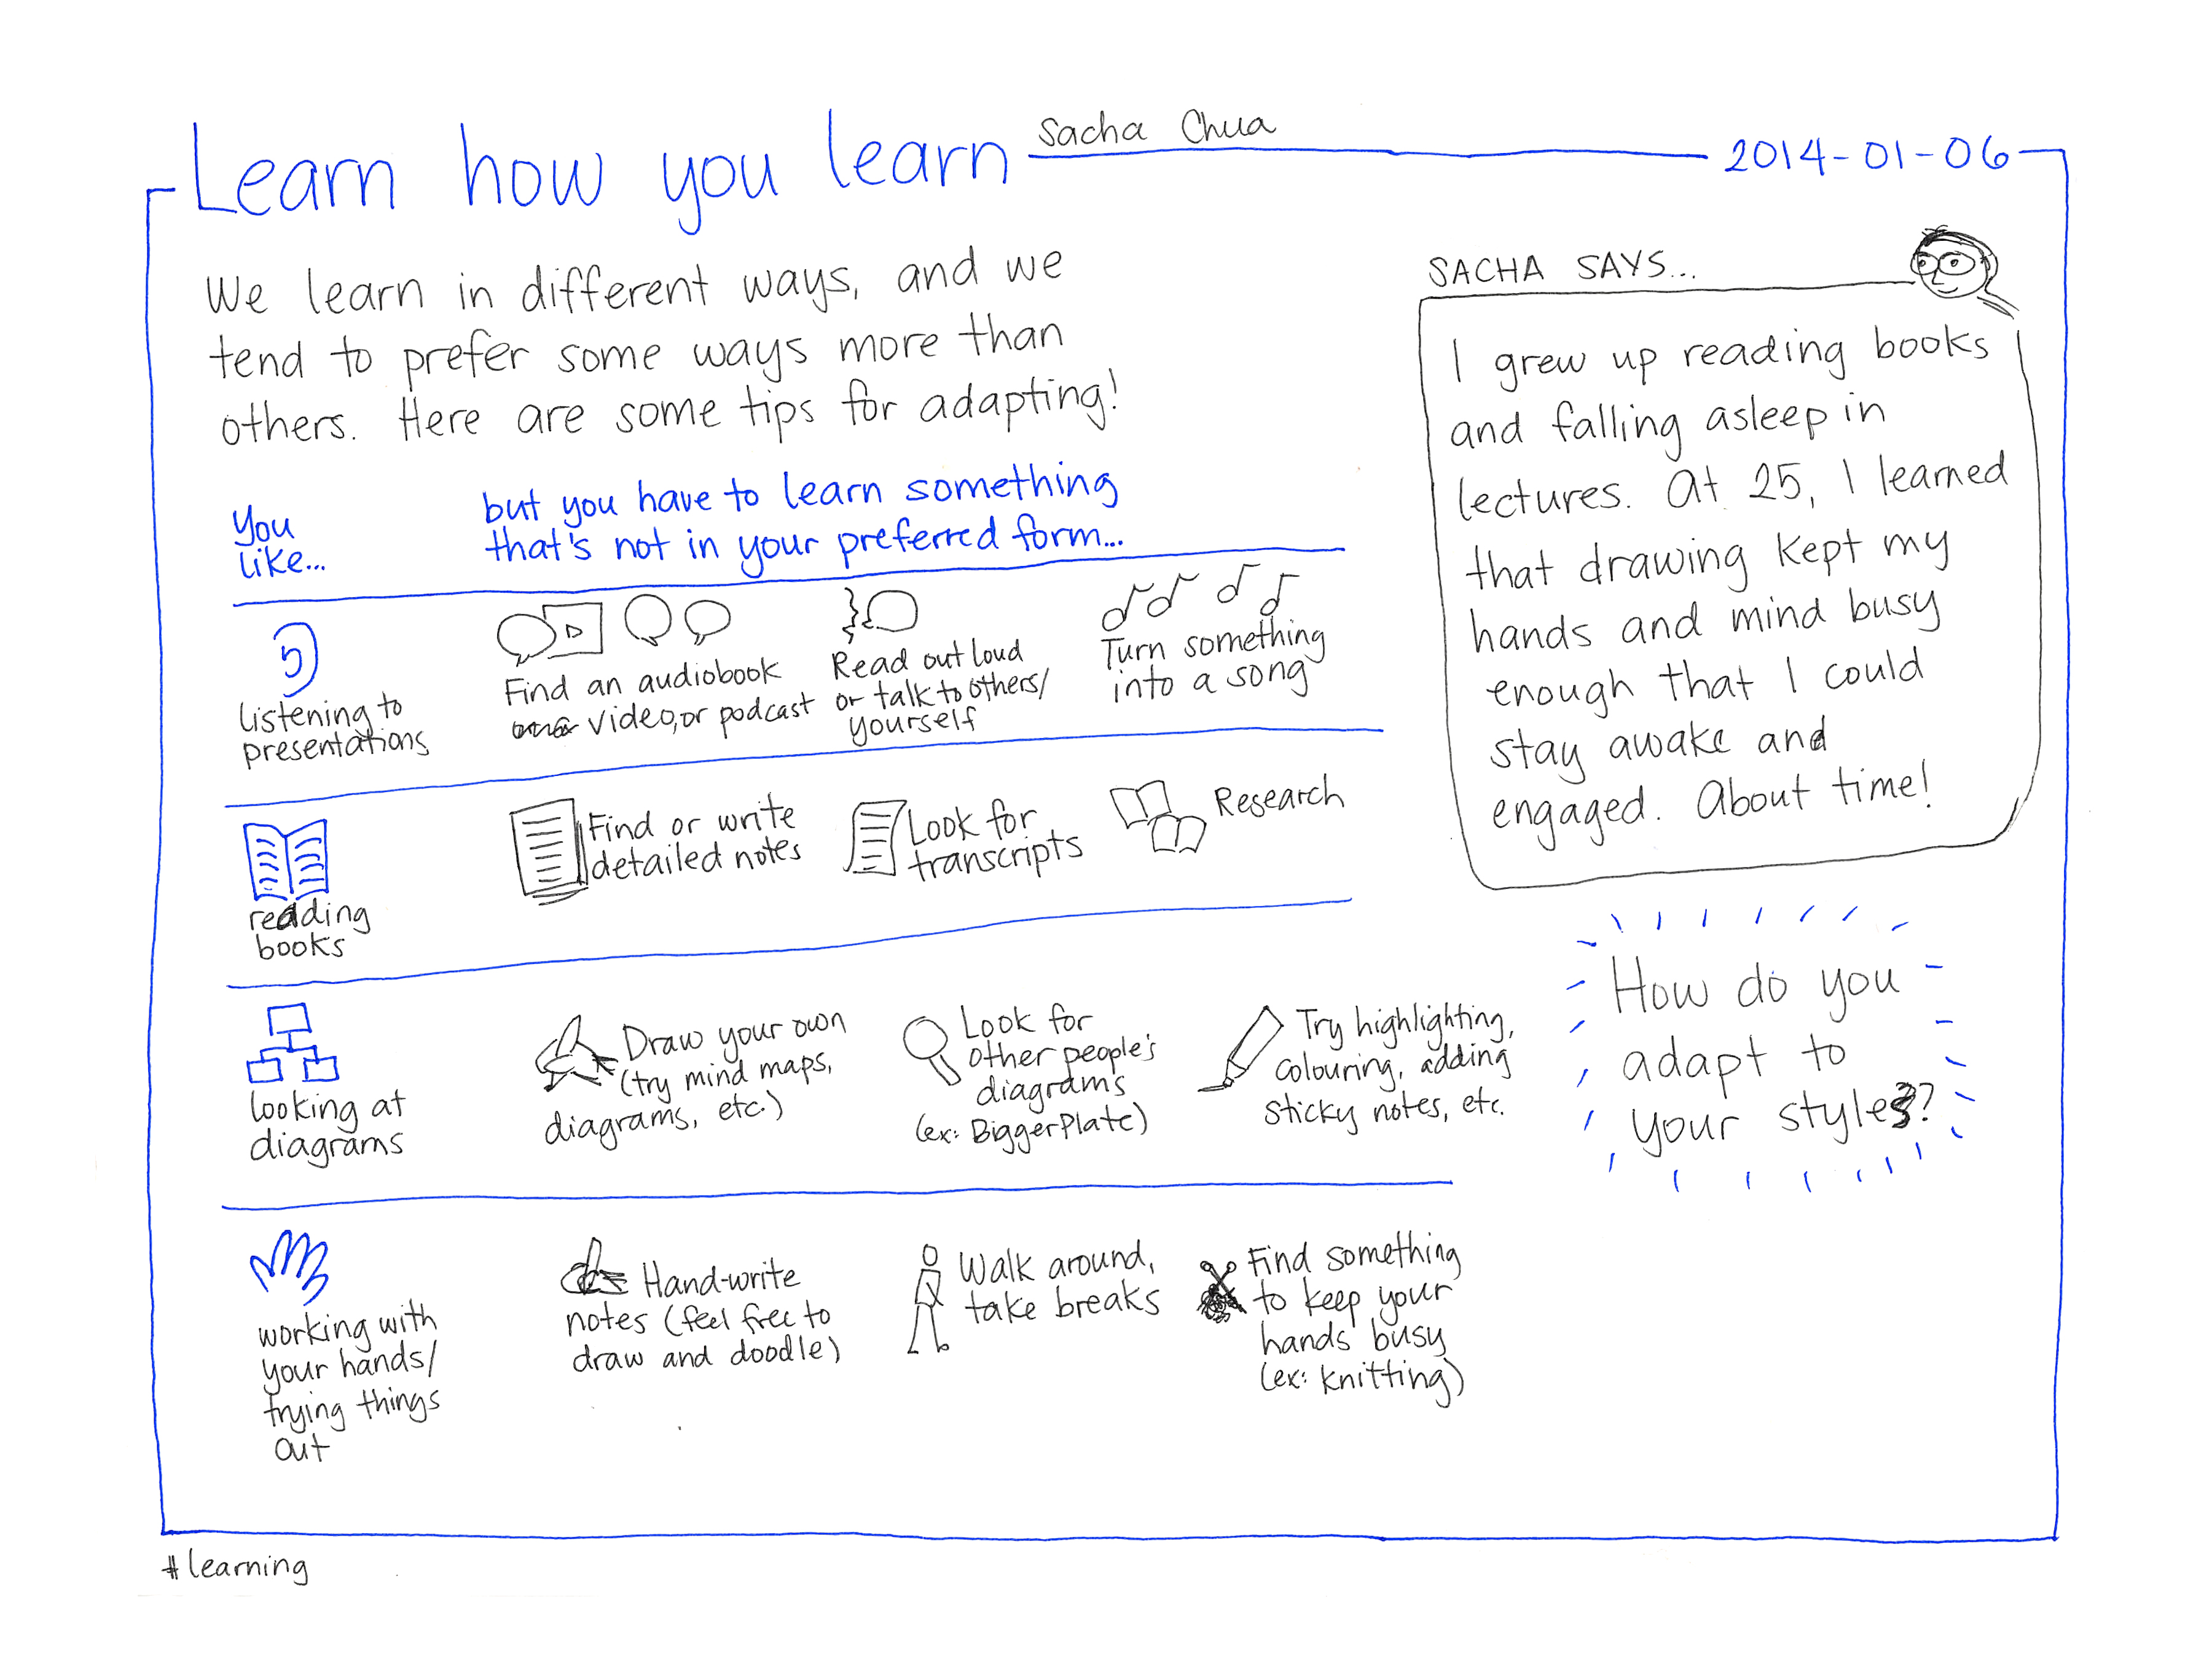 Learn how you learn
Sacha Chua
2014-01-06
We learn in different ways, and we
tend to prefer some ways more than
others. Here are some tips for adapting!
You
like...
but you have to learn something
that's not in your preferred form...
listening to
presentations
Find an audiobook
video, or podcast
Read out loud
or talk to others/
yourself
Turn something
into a song
reading
books
Find or write
detailed notes
Look for
transcripts
Research
looking at
diagrams
Draw your own
(try mind maps,
diagrams, etc.)
Look for
other people's
diagrams
(ex: BiggerPlate)
Try highlighting,
colouring, adding
sticky notes, etc.
working with
your hands/
trying things
out
Hand-write
notes (feel free to
draw and doodle)
Walk around,
take breaks
Find something
to keep your
hands busy
(ex: knitting)
SACHA SAYS...
I grew up reading books
and falling asleep in
lectures. At 25, I learned
that drawing kept my
hands and mind busy
enough that I could
stay awake and
engaged. About time!
How do you
adapt to
your styles?
#learning